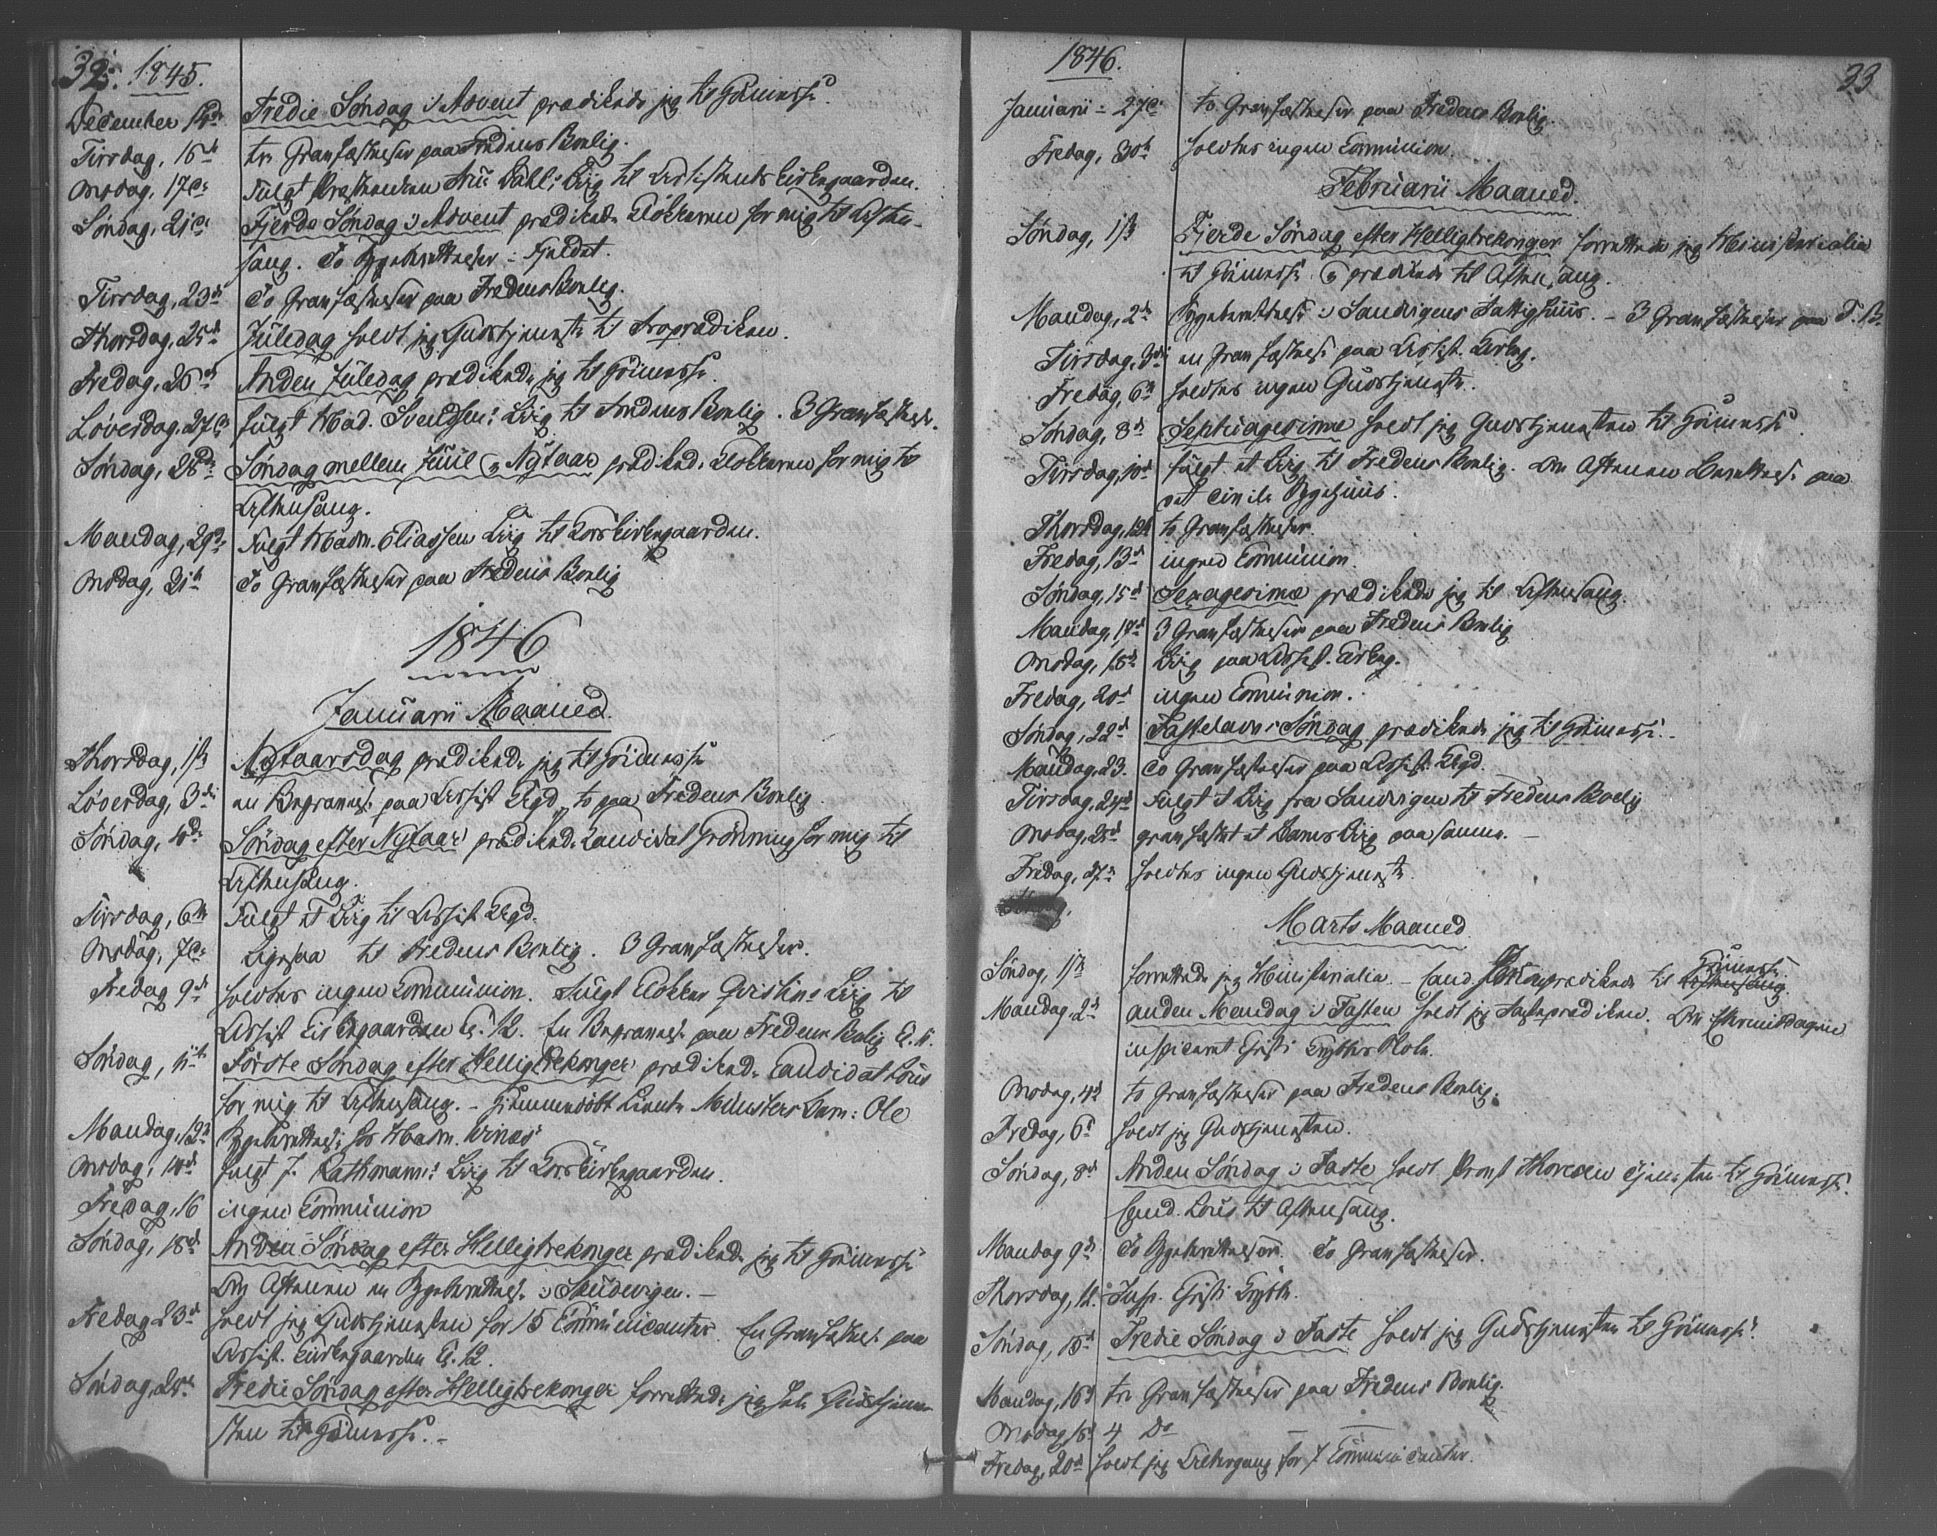 32. 1845.
December 14de Tredie Søndag i Advent prædikede jeg til Høimesse.
Tirsdag, 16de tre Gravfæstelser paa Fredens Bolig.
Onsdag, 17de fulgt Liig til Assistentskirkegaarden.
Søndag, 21de Fjerde Søndag i Advent prædikede Klokkeren for mig til Aften-
sang. To Sygeberettelser
Tirsdag, 23de To Gravfæstelser paa Fredens Bolig.
Thorsdag, 25de Juledag holdt jeg Gudstjeneste til Froprædiken.
Fredag, 26de Anden Juledag prædikede jeg til Høimesse.
Løverdag, 27de fulgt Mad. Svendsens Liig til Fredens Bolig. 3 Gravfæstelser.
Søndag, 28de Søndag mellem Juul og Nytaar prædikede Klokkeren for mig til
Aftensang.
Mandag, 29de Fulgt Madm. Eliassen Liig til Korskirkegaarden.
Onsdag, 31te To Gravfæstelser paa Fredens Bolig
1846
Januarii Maaned.
Thorsdag, 1ste Nytaarsdag prædikede jeg til Høimesse
Løverdag, 3die en Begravelse paa Assist. Kgd to paa Fredens Bolig
Søndag, 4de Søndag efter Nytaar prædikede Candidat Grönning for mig til
Aftensang.
Tirsdag, 6te Fulgt et Liig til Assist. Kgd.
Onsdag, 7de Ligesaa til Fredens Bolig. 3 Gravfæstelser.
Fredag 9de holdtes ingen Communion. Fulgt Klokker Liig til
Assist Kirkegaarden Cl. 12. En Begravelse paa Fredens Bolig
Søndag, 11te Første Søndag efter Helligtrekonger prædikede Candidat Lous
for mig til Aftensang. - Hjemmedøbt Münsters Barn: Ole
Mandag, 12te Sygeberettelse hos Madm.
Onsdag, 14de fulgt J. Rathmanns Liig til Korskirkegaarden.
Fredag, 16 ingen Communion
Søndag, 18de Anden Søndag efter Helligtrekonger prædikede jeg til Høimesse
Om Aftenen en Sygeberettelse i Skudevigen. -
Fredag 23de holdt jeg Gudstjenesten for 15 Communicanter. En Gravfæstelse paa
Assist. Kirkegaarden Cl. 12.
Søndag, 25de Tredie Søndag efter Helligtrekonger forrettede jeg hele Gudstjene-
sten til Høimesse. -
1846. 33
Januarii - 27de to Gravfæstelser paa Fredens Bolig.
Fredag, 30te holdtes ingen Communion.
Februarii Maaned.
Søndag, 1ste Fjerde Søndag efter Helligtrekonger forrettede jeg Ministerialia
til Høimesse og prædikede til Aftensang.
Mandag, 2den Sygeberettelse i Sandvigens Fattighuus. - 3 Gravfæstelser paa F. B.
Tirsdag, 3die en Gravfæstelse paa Assist. Kirkeg.
Fredag, 6te holdtes ingen Gudstjeneste.
Søndag, 8de Septuagesimæ holdt jeg Gudstjenesten til Høimesse.
Tirsdag, 10de fulgt et Liig til Fredens Bolig. Om Aftenen Berettelse paa
det civile Sygehuus.
Thorsdag, 12te to Gravfæstelser.
Fredag, 13de ingen Communion.
Søndag, 15de Sexagesimæ prædikede jeg til Aftensang.
Mandag, 3 Gravfæstelser paa Fredens Bolig
Onsdag, 18de Liig paa Assist. Kirkeg.
Fredag, 20de ingen Communion.
Søndag, 22de Fastelavns Søndag prædikede jeg til Høimesse. -
Mandag, 23. To Gravfæstelser paa Assist. Kgd.
Tirsdag, 24de Fulgt et Liig fra Sandvigen til Fredens Bolig
Onsdag, 25de gravfæstet et Barns Liig paa samme. -
Fredag, 27de holdtes ingen Gudstjeneste
Marts Maaned
Søndag, 1ste forrettede jeg Ministerialia. - Cand. prædikede til Høimesse.
Mandag, 2den anden Mandag i Fasten holdt jeg Fasteprædiken. Om Eftermiddagen
inspiceret Christi Krybbes Skole.
Onsdag, 4de to Gravfæstelser paa Fredens Bolig.
Fredag, 6te holdt jeg Gudstjenesten.
Søndag, 8de Anden Søndag i Faste holdt Provst Thoresen Tjenesten til Høimesse.
Cand. Lous til Aftensang.
Mandag 9de To Sygeberettelser. To Gravfæstelser.
Thorsdag, 12. Insp. Christi Krybbe.
Søndag, 15de Tredie Søndag i Faste holdt jeg Gudstjenesten til Høimesse.
Mandag, 16de tre Gravfæstelser paa Fredens Bolig.
Onsdag 18de 4 Do
Fredag, 20de holdt jeg Altergang for 7 Communicanter.